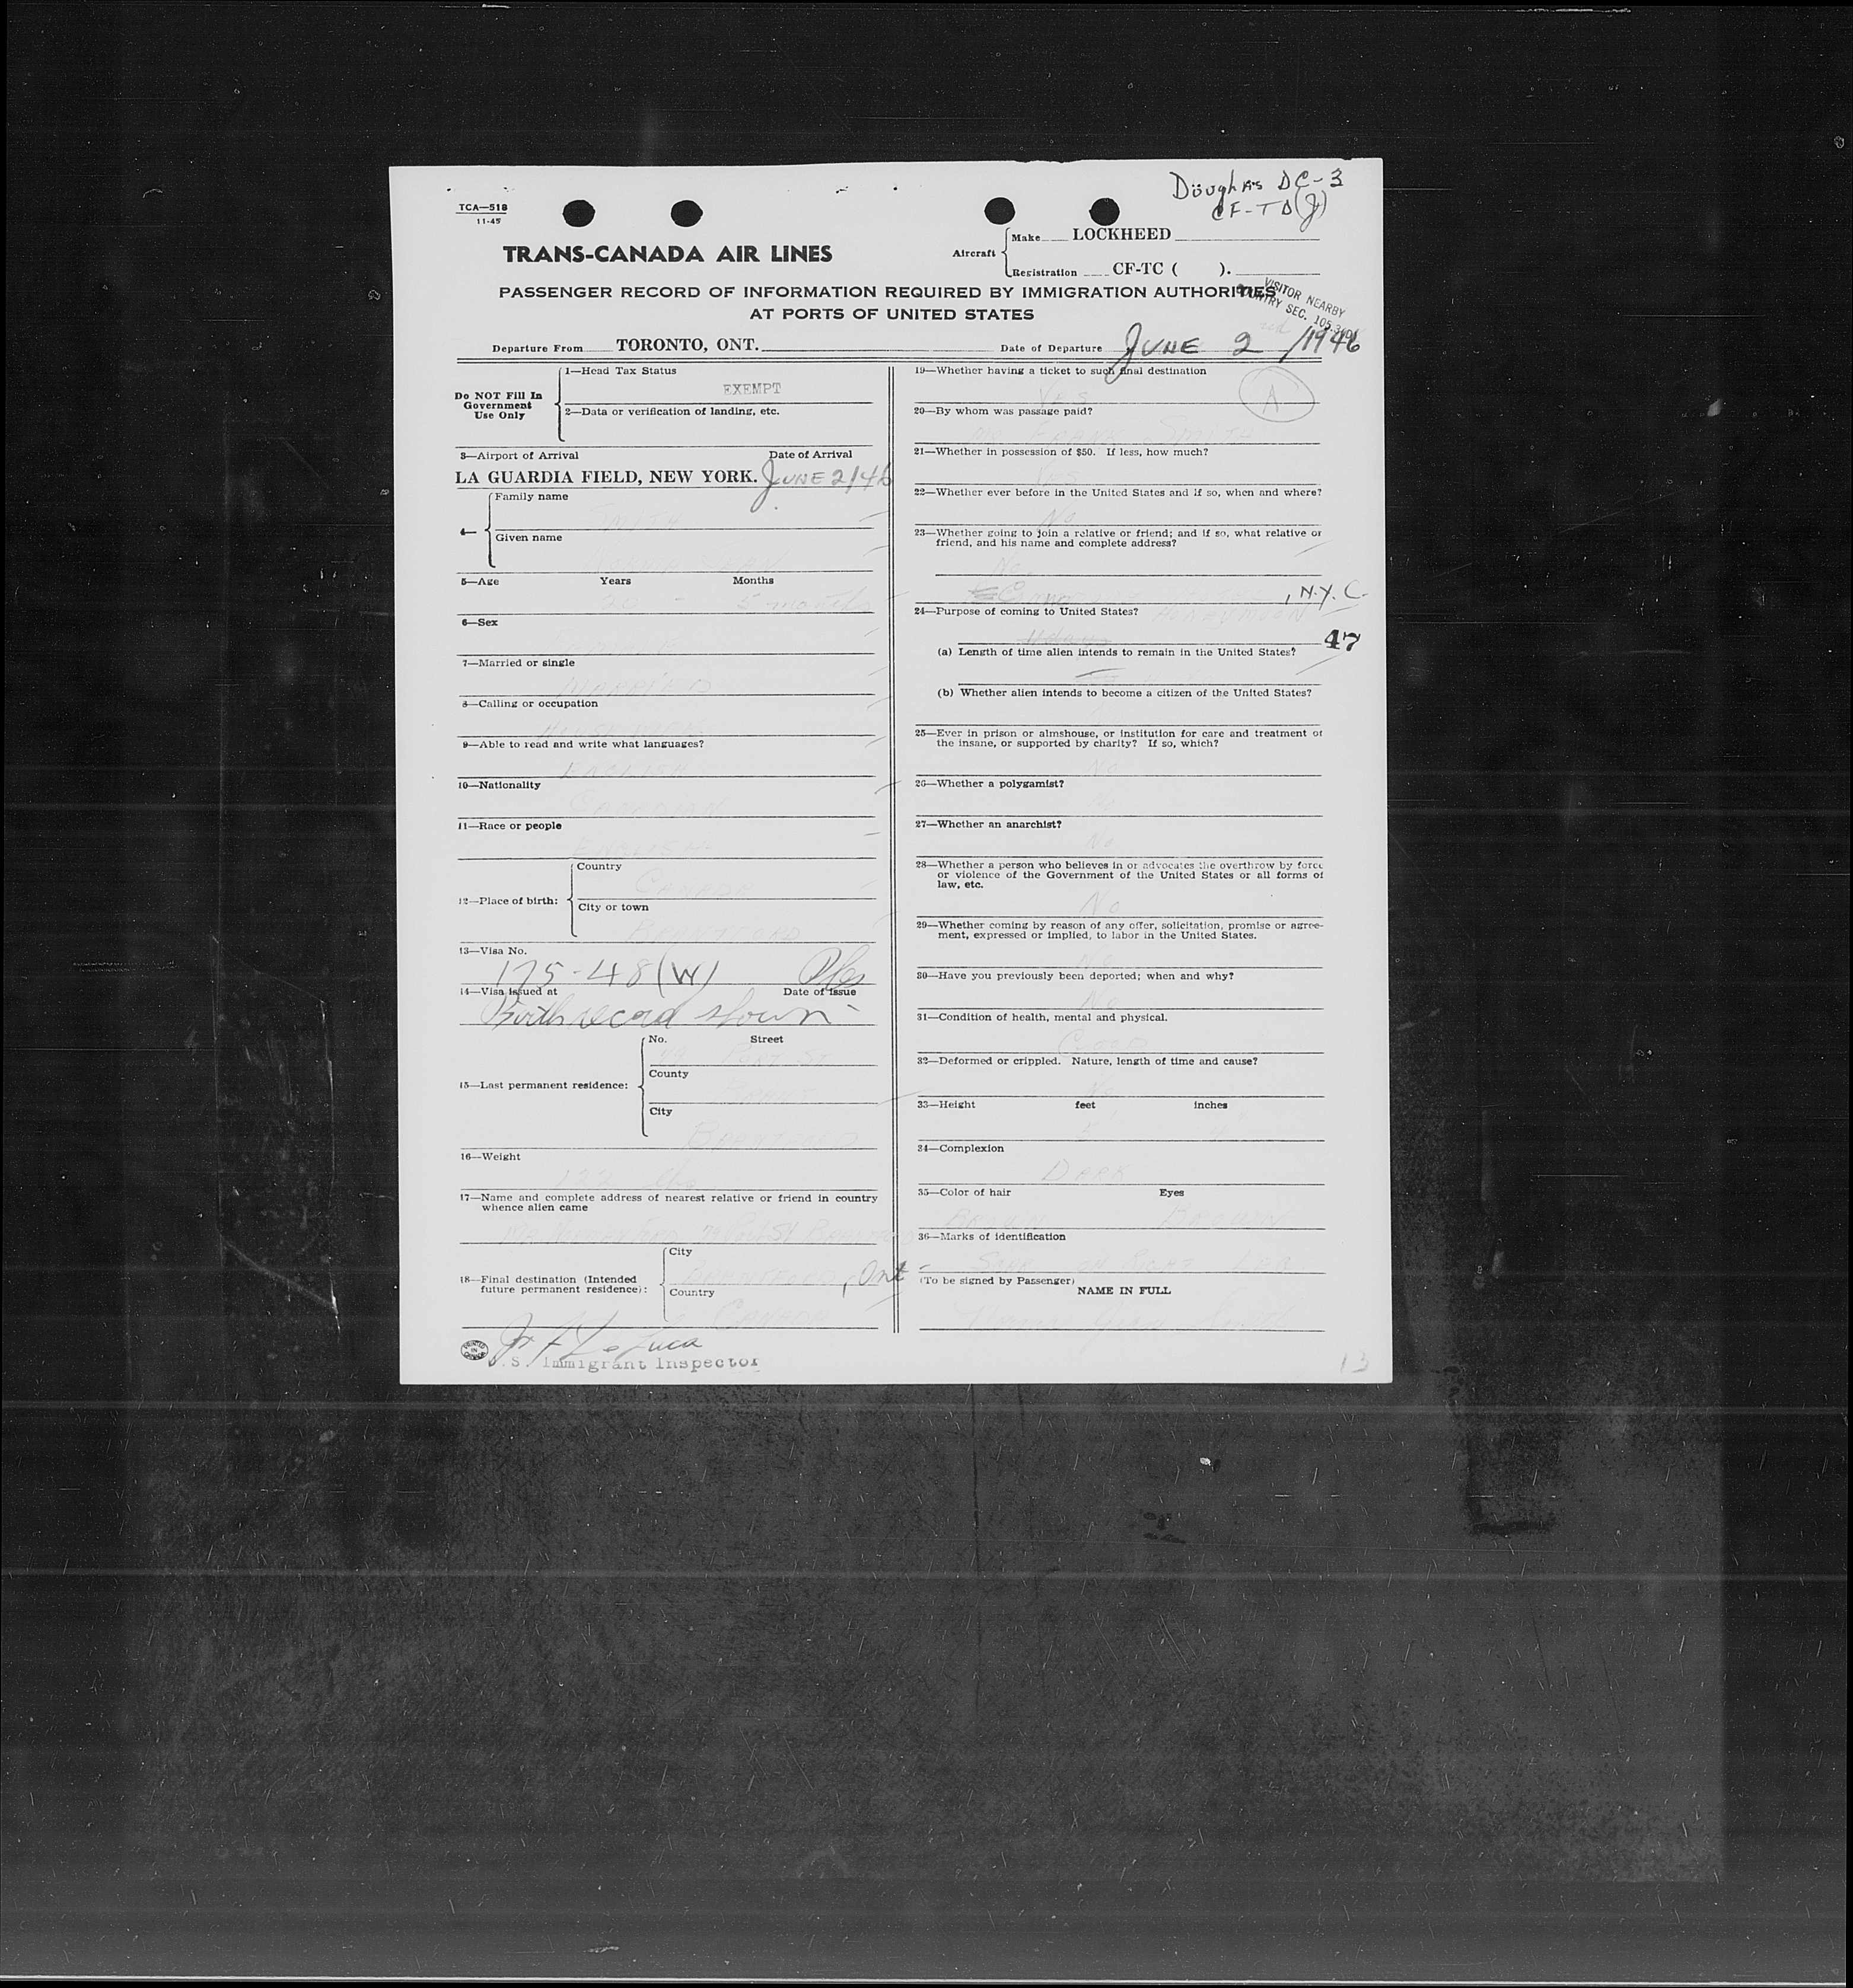 Douglas DC-3
CF-TD(J)
TCA—518
11-45
TRANS-CANADA AIR LINES
Aircraft
Make LOCKHEED
Registration CF-TC ( ).
PASSENGER RECORD OF INFORMATION REQUIRED BY IMMIGRATION AUTHORITIES
AT PORTS OF UNITED STATES
VISITOR NEARBY
COUNTRY SEC. 105.3(D)
Departure From TORONTO, ONT.
Date of Departure JUNE 2 /1946
Do NOT Fill In
Government
Use Only
1—Head Tax Status
EXEMPT
2—Data or verification of landing, etc.
3—Airport of Arrival Date of Arrival
LA GUARDIA FIELD, NEW YORK. JUNE 2/46
4—
Family name
SMITH
Given name
5—Age Years Months
5 months
6—Sex
7—Married or single
MARRIED
8—Calling or occupation
9—Able to read and write what languages?
ENGLISH
10—Nationality
CANADIAN
11—Race or people
ENGLISH
12—Place of birth:
Country
CANADA
City or town
BRANTFORD
13—Visa No.
175-48(W)
14—Visa issued at Date of issue
Birth record shown
15—Last permanent residence:
No. Street
PORT ST
County
BRANT
City
BRANTFORD
16—Weight
122 lbs
17—Name and complete address of nearest relative or friend in country
whence alien came
18—Final destination (Intended
future permanent residence):
City
BRANTFORD, Ont
Country
CANADA
PRINTED
IN
CANADA
U.S. Immigrant Inspector
19—Whether having a ticket to such final destination
YES
A
20—By whom was passage paid?
MR FRANK SMITH
21—Whether in possession of $50. If less, how much?
YES
22—Whether ever before in the United States and if so, when and where?
No
23—Whether going to join a relative or friend; and if so, what relative or
friend, and his name and complete address?
No
, N.Y.C.
24—Purpose of coming to United States?
HONEYMOON
47
(a) Length of time alien intends to remain in the United States?
(b) Whether alien intends to become a citizen of the United States?
25—Ever in prison or almshouse, or institution for care and treatment of
the insane, or supported by charity? If so, which?
No
26—Whether a polygamist?
No
27—Whether an anarchist?
No
28—Whether a person who believes in or advocates the overthrow by force
or violence of the Government of the United States or all forms of
law, etc.
No
29—Whether coming by reason of any offer, solicitation, promise or agree-
ment, expressed or implied, to labor in the United States.
No
30—Have you previously been deported; when and why?
No
31—Condition of health, mental and physical.
GOOD
32—Deformed or crippled. Nature, length of time and cause?
No
33—Height feet inches
5 4
34—Complexion
DARK
35—Color of hair Eyes
BROWN BROWN
36—Marks of identification
(To be signed by Passenger)
NAME IN FULL
13